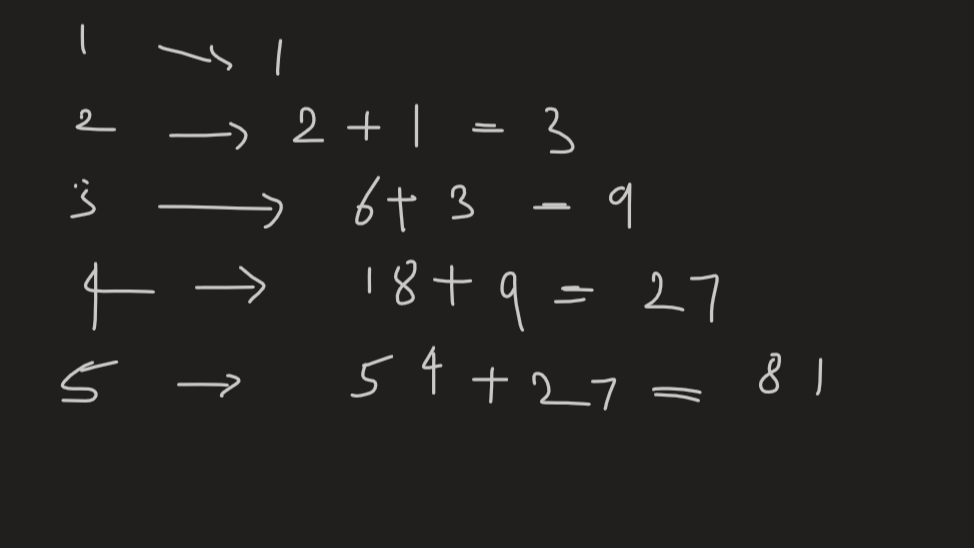 1 → 1
2 → 2 + 1 = 3
3 → 6 + 3 = 9
4 → 18 + 9 = 27
5 → 54 + 27 = 81